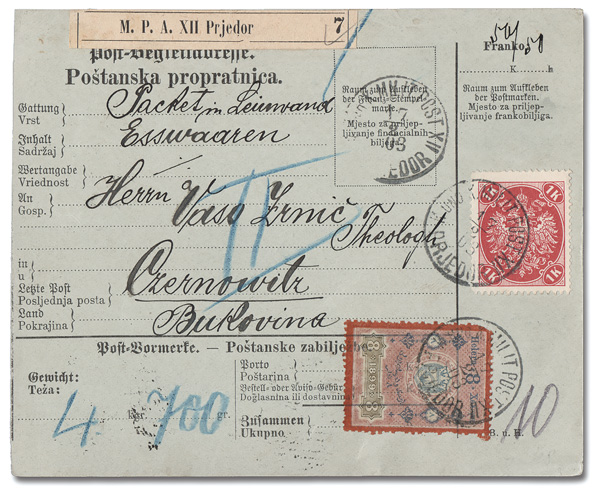 M. P. A. XII Prjedor 7
Post-Begleitadresse.
Poštanska propratnica.
50/50
Franko
K. h.
Gattung
Vrst
Packet in Leinwand
Inhalt
Sadržaj
Esswaaren
Raum zum Aufkleben
der Finanz-Stempel-
marke.
Mjesto za priljep-
ljivanje financialnih
biljega
Raum zum Aufkleben
der Postmarken.
Mjesto za priljep-
ljivanje frankobiljiga.
Wertangabe
Vriednost
II
An
Gosp.
Herrn Vaso Zrnič
Theologe
1K 1K
in
u
Letzte Post
Posljednja posta
Czernowitz
Land
Pokrajina
Bukovina
Post-Vormerke. – Poštanske zabiljež
Gewicht:
Teža:
4 kgr. 700 gr.
Porto
Poštarina
Bestell- oder Aviso-Gebühr
Doglasnina ili dostavnina
Zusammen
Ukupno
8 1899 8
10
B. u. H.